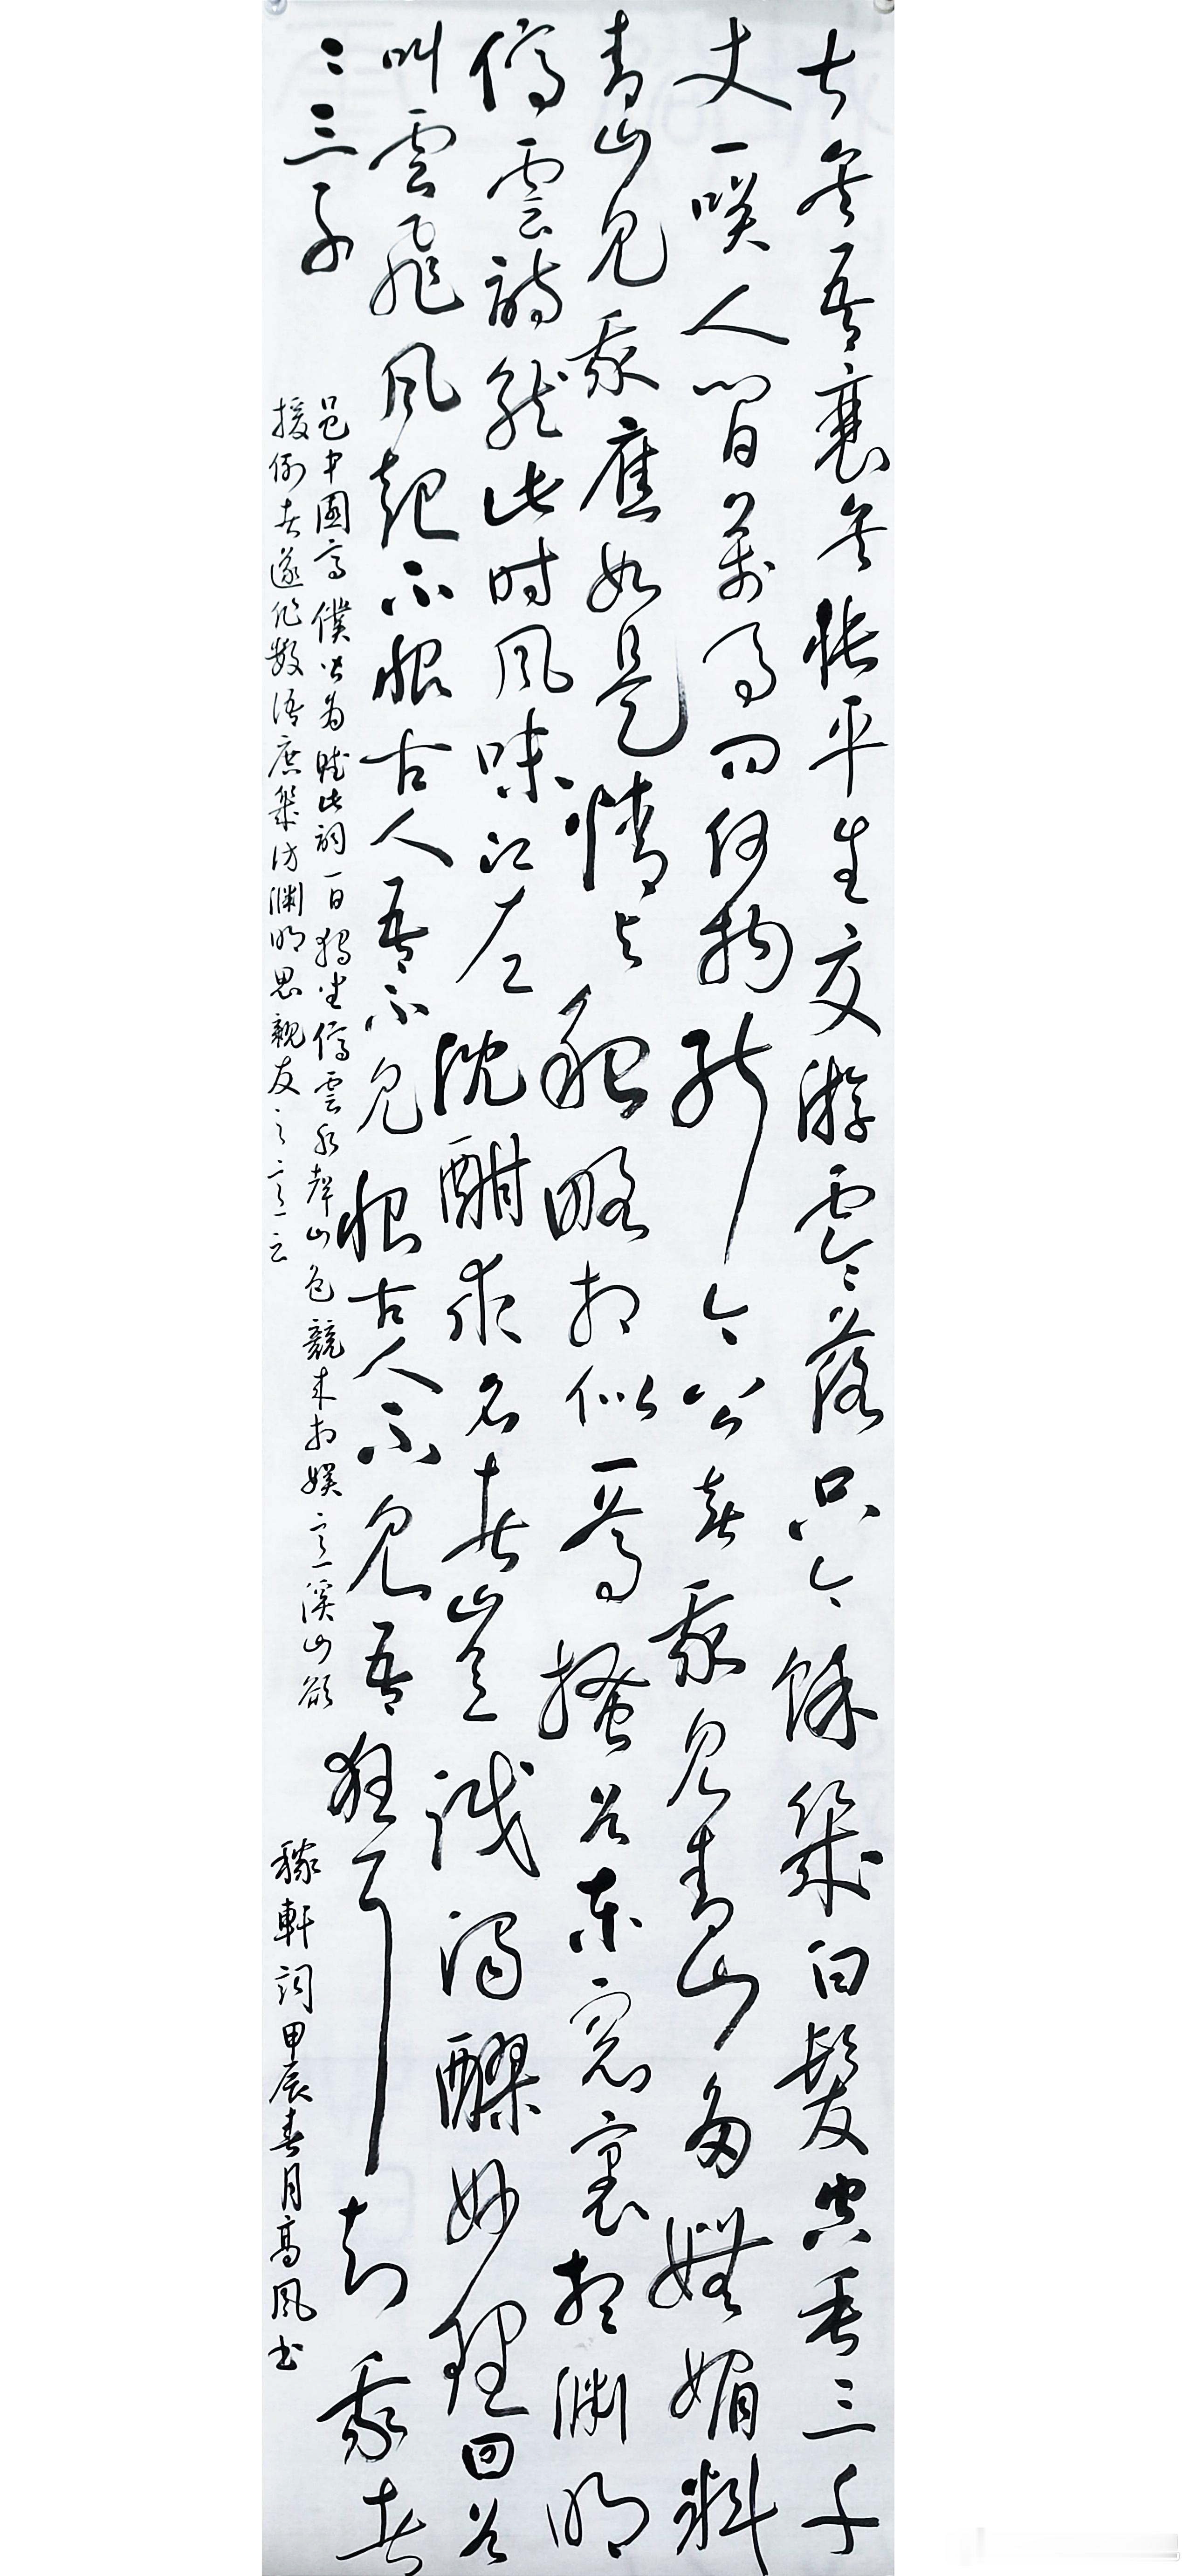 甚矣吾衰矣悵平生交游零落只今餘幾白髮空垂三千
丈一笑人間萬事問何物能令公喜我見青山多嫵媚料
青山見我應如是情與貌略相似一尊搔首東窗裏想淵明
停雲詩就此時風味江左沈酣求名者豈識濁醪妙理回首
叫雲飛風起不恨古人吾不見恨古人不見吾狂耳知我者
二三子
邑中園亭僕皆為賦此詞一日獨坐停雲水聲山色競來相娛意溪山欲
援例者遂作數語庶幾仿淵明思親友之意云
稼軒詞甲辰春月高風书